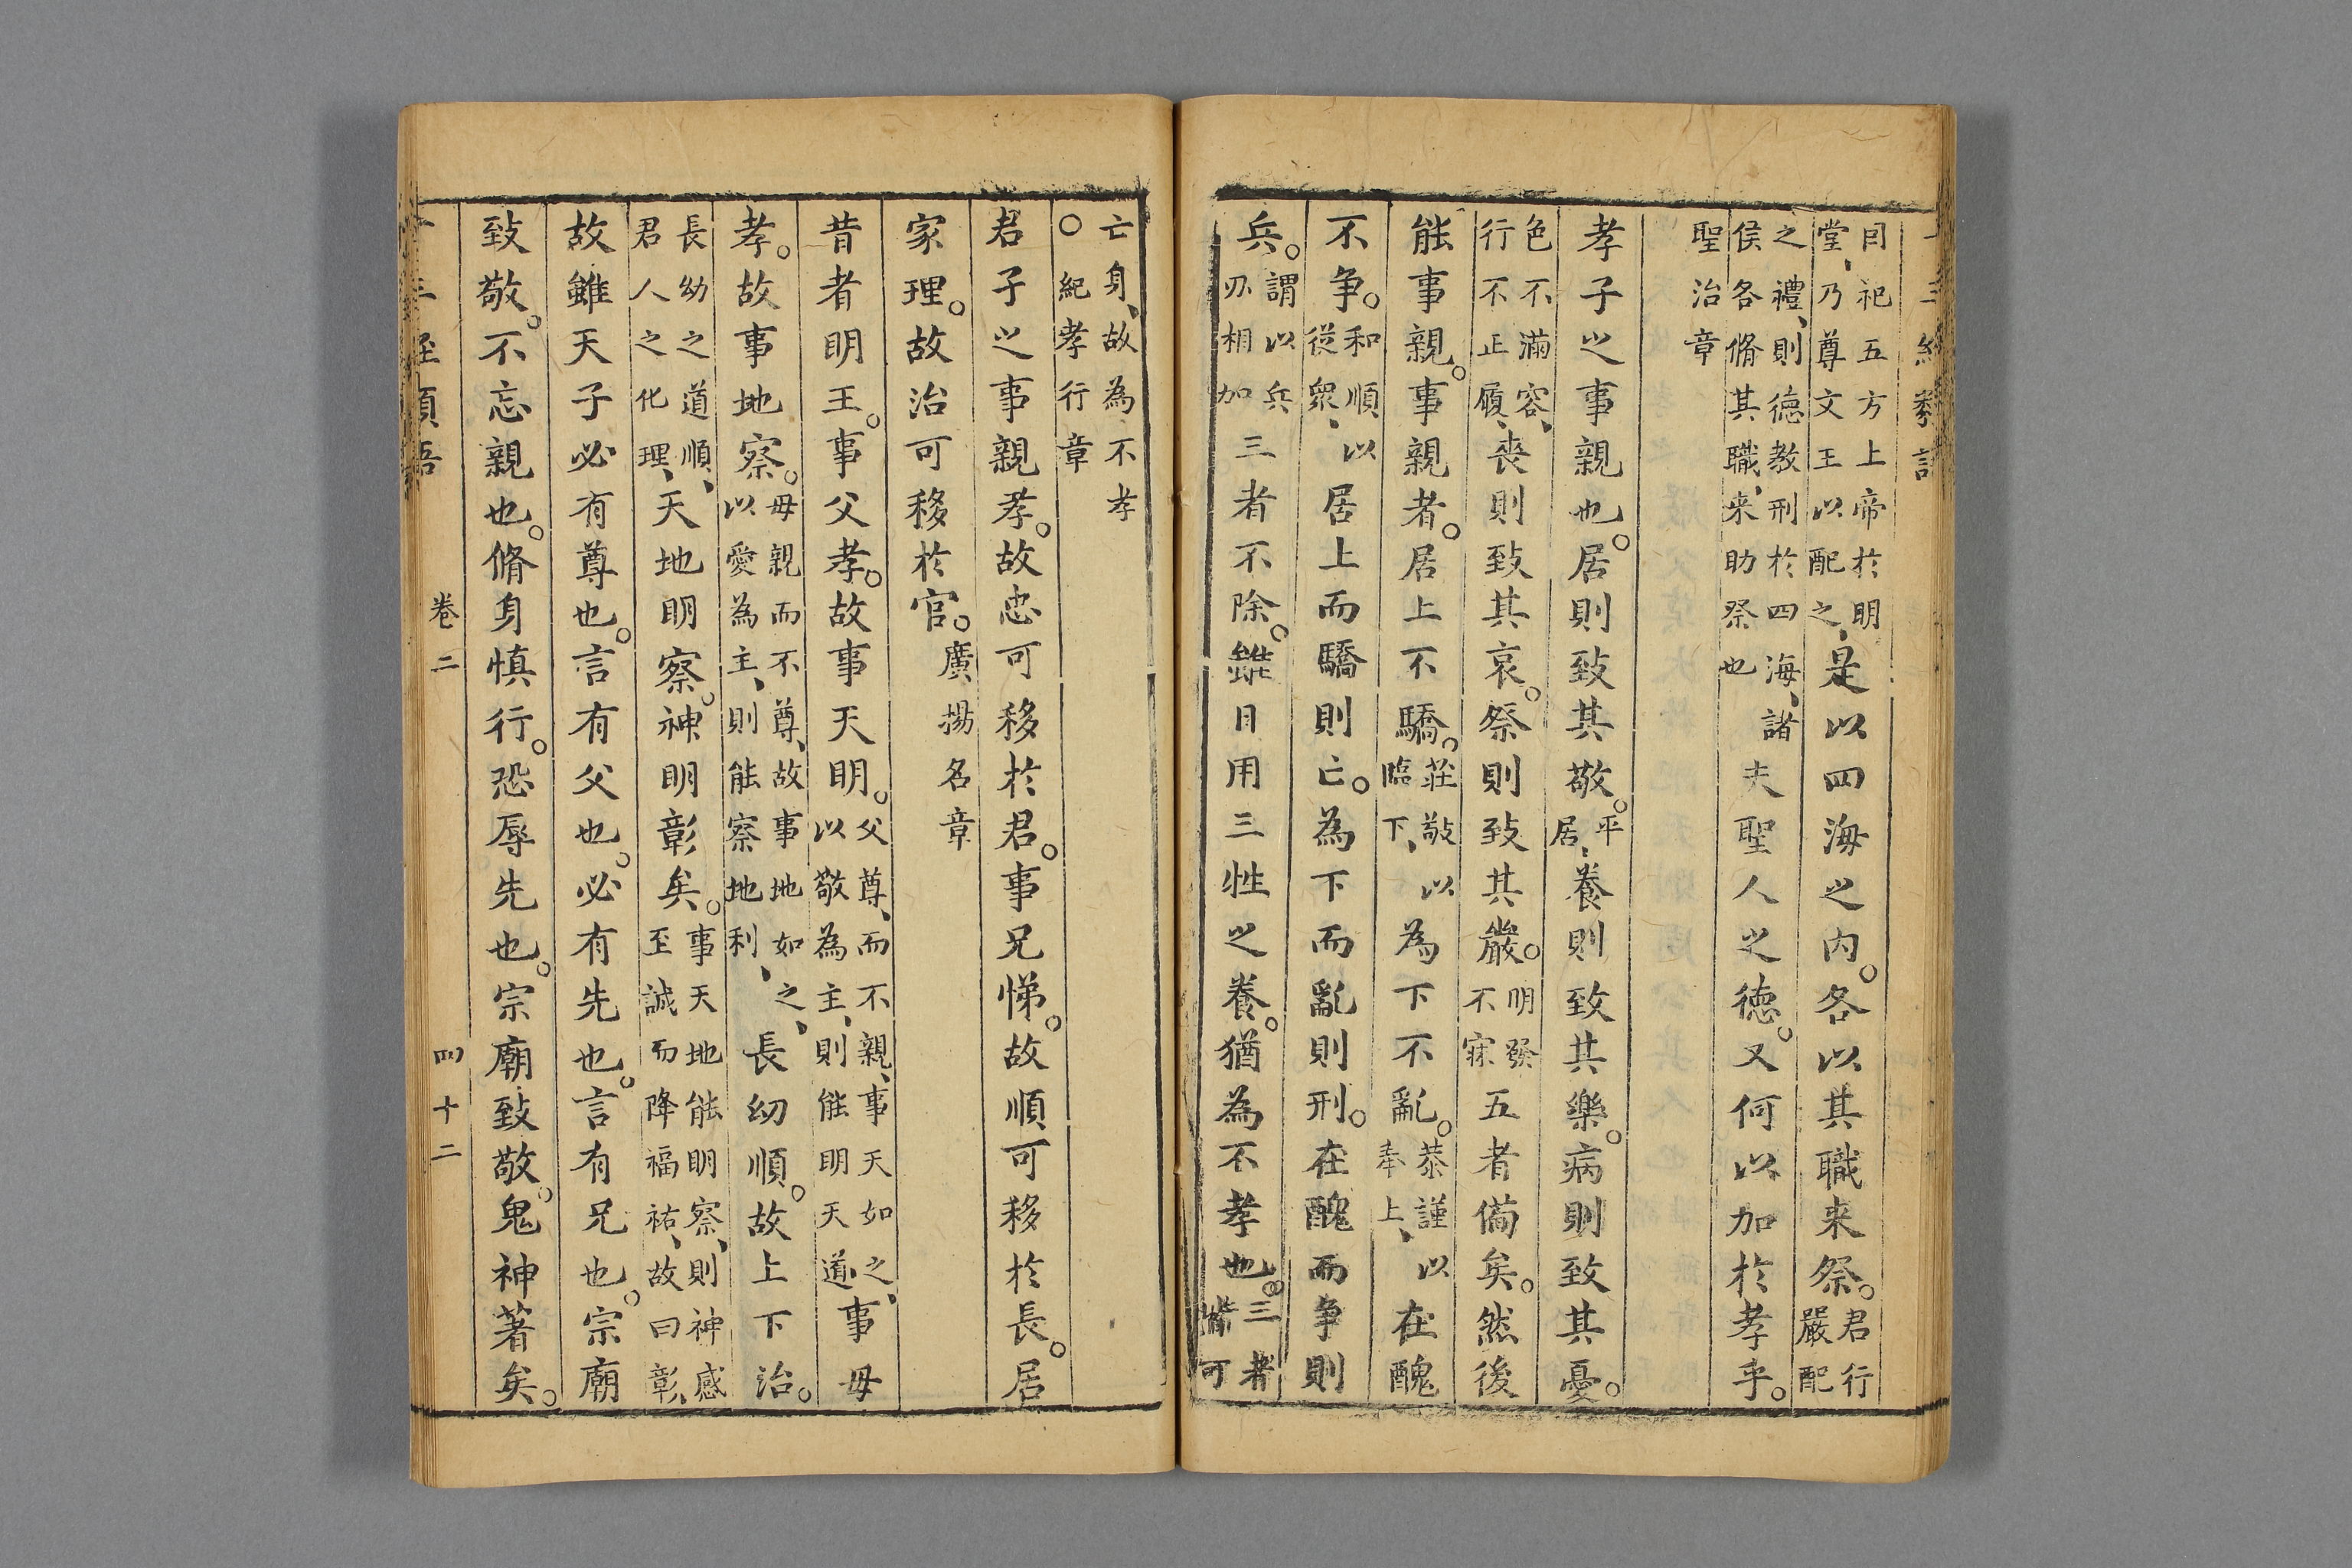 三經類語
因祀五方上帝於明堂、乃尊文王以配之、是以四海之内。各以其職来祭。君行嚴配
之禮、則德教刑於四海、諸侯各脩其職、来助祭也夫聖人之德。又何以加於孝乎。
聖治章
孝子之事親也。居則致其敬。平居、養則致其樂。病則致其憂。
色不滿容、行不正履、喪則致其哀。祭則致其嚴。明發不寐五者備矣。然後
能事親。事親者。居上不驕。莊敬以臨下、為下不亂。恭謹以奉上、在醜
不争。和順以從衆、居上而驕則亡。為下而亂則刑。在醜而争則
兵。謂以兵刃相加三者不除。雖日用三牲之養。猶為不孝也。三者皆可
亡身、故為不孝○紀孝行章
君子之事親孝。故忠可移於君。事兄悌。故順可移於長。居
家理。故治可移於官。廣揚名章
昔者明王。事父孝。故事天明。父尊、而不親、事天如之、以敬為主、則能明天道、事母
孝。故事地察。母親而不尊、故事地如之、以愛為主、則能察地利、長幼順。故上下治。
長幼之道順、君人之化理、天地明察。神明彰矣。事天地能明察、則神感至誠而降福祐、故曰彰、
故雖天子必有尊也。言有父也。必有先也。言有兄也。宗廟
致敬。不忘親也。脩身慎行。恐辱先也。宗廟致敬。鬼神著矣。
十三經類語 卷二 四十二